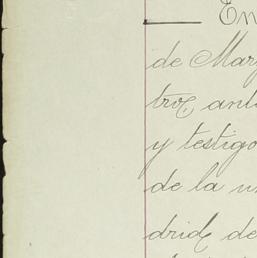 En
de Mar
tro, ant
y testigo
de la
drid, de